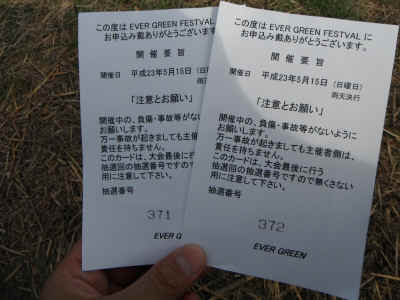 この度は EVER GREEN FESTVAL に
お申込み戴ありがとうございます。
開 催 要 旨
開催日 平成23年5月15日 (日
雨
「注意とお願い」
開催中の、負傷・事故等がないように
お願いします。
万一事故が起きましても主催者側は、
責任を持ちません。
このカードは、大会最後に行う
抽選回の抽選番号ですので
用に注意して下さい。
抽選番号
371
EVER G
この度は EVER GREEN FESTVAL に
お申込み戴ありがとうございます。
開 催 要 旨
開催日 平成23年5月15日 (日曜日)
雨天決行
「注意とお願い」
開催中の、負傷・事故等がないように
お願いします。
万一事故が起きましても主催者側は、
責任を持ちません。
このカードは、大会最後に行う
抽選回の抽選番号ですので無くさない
用に注意して下さい。
抽選番号
372
EVER GREEN